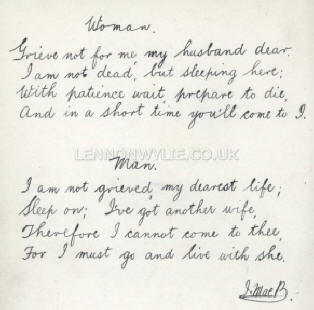 Woman.
Grieve not for me, my husband dear.
I am not dead, but sleeping here;
With patience wait, prepare to die,
And in a short time you'll come to I.
LENNONWYLIE.CO.UK
Man.
I am not grieved, my dearest life;
Sleep on; I've got another wife,
Therefore I cannot come to thee,
For I must go and live with she.
J. Mac B.